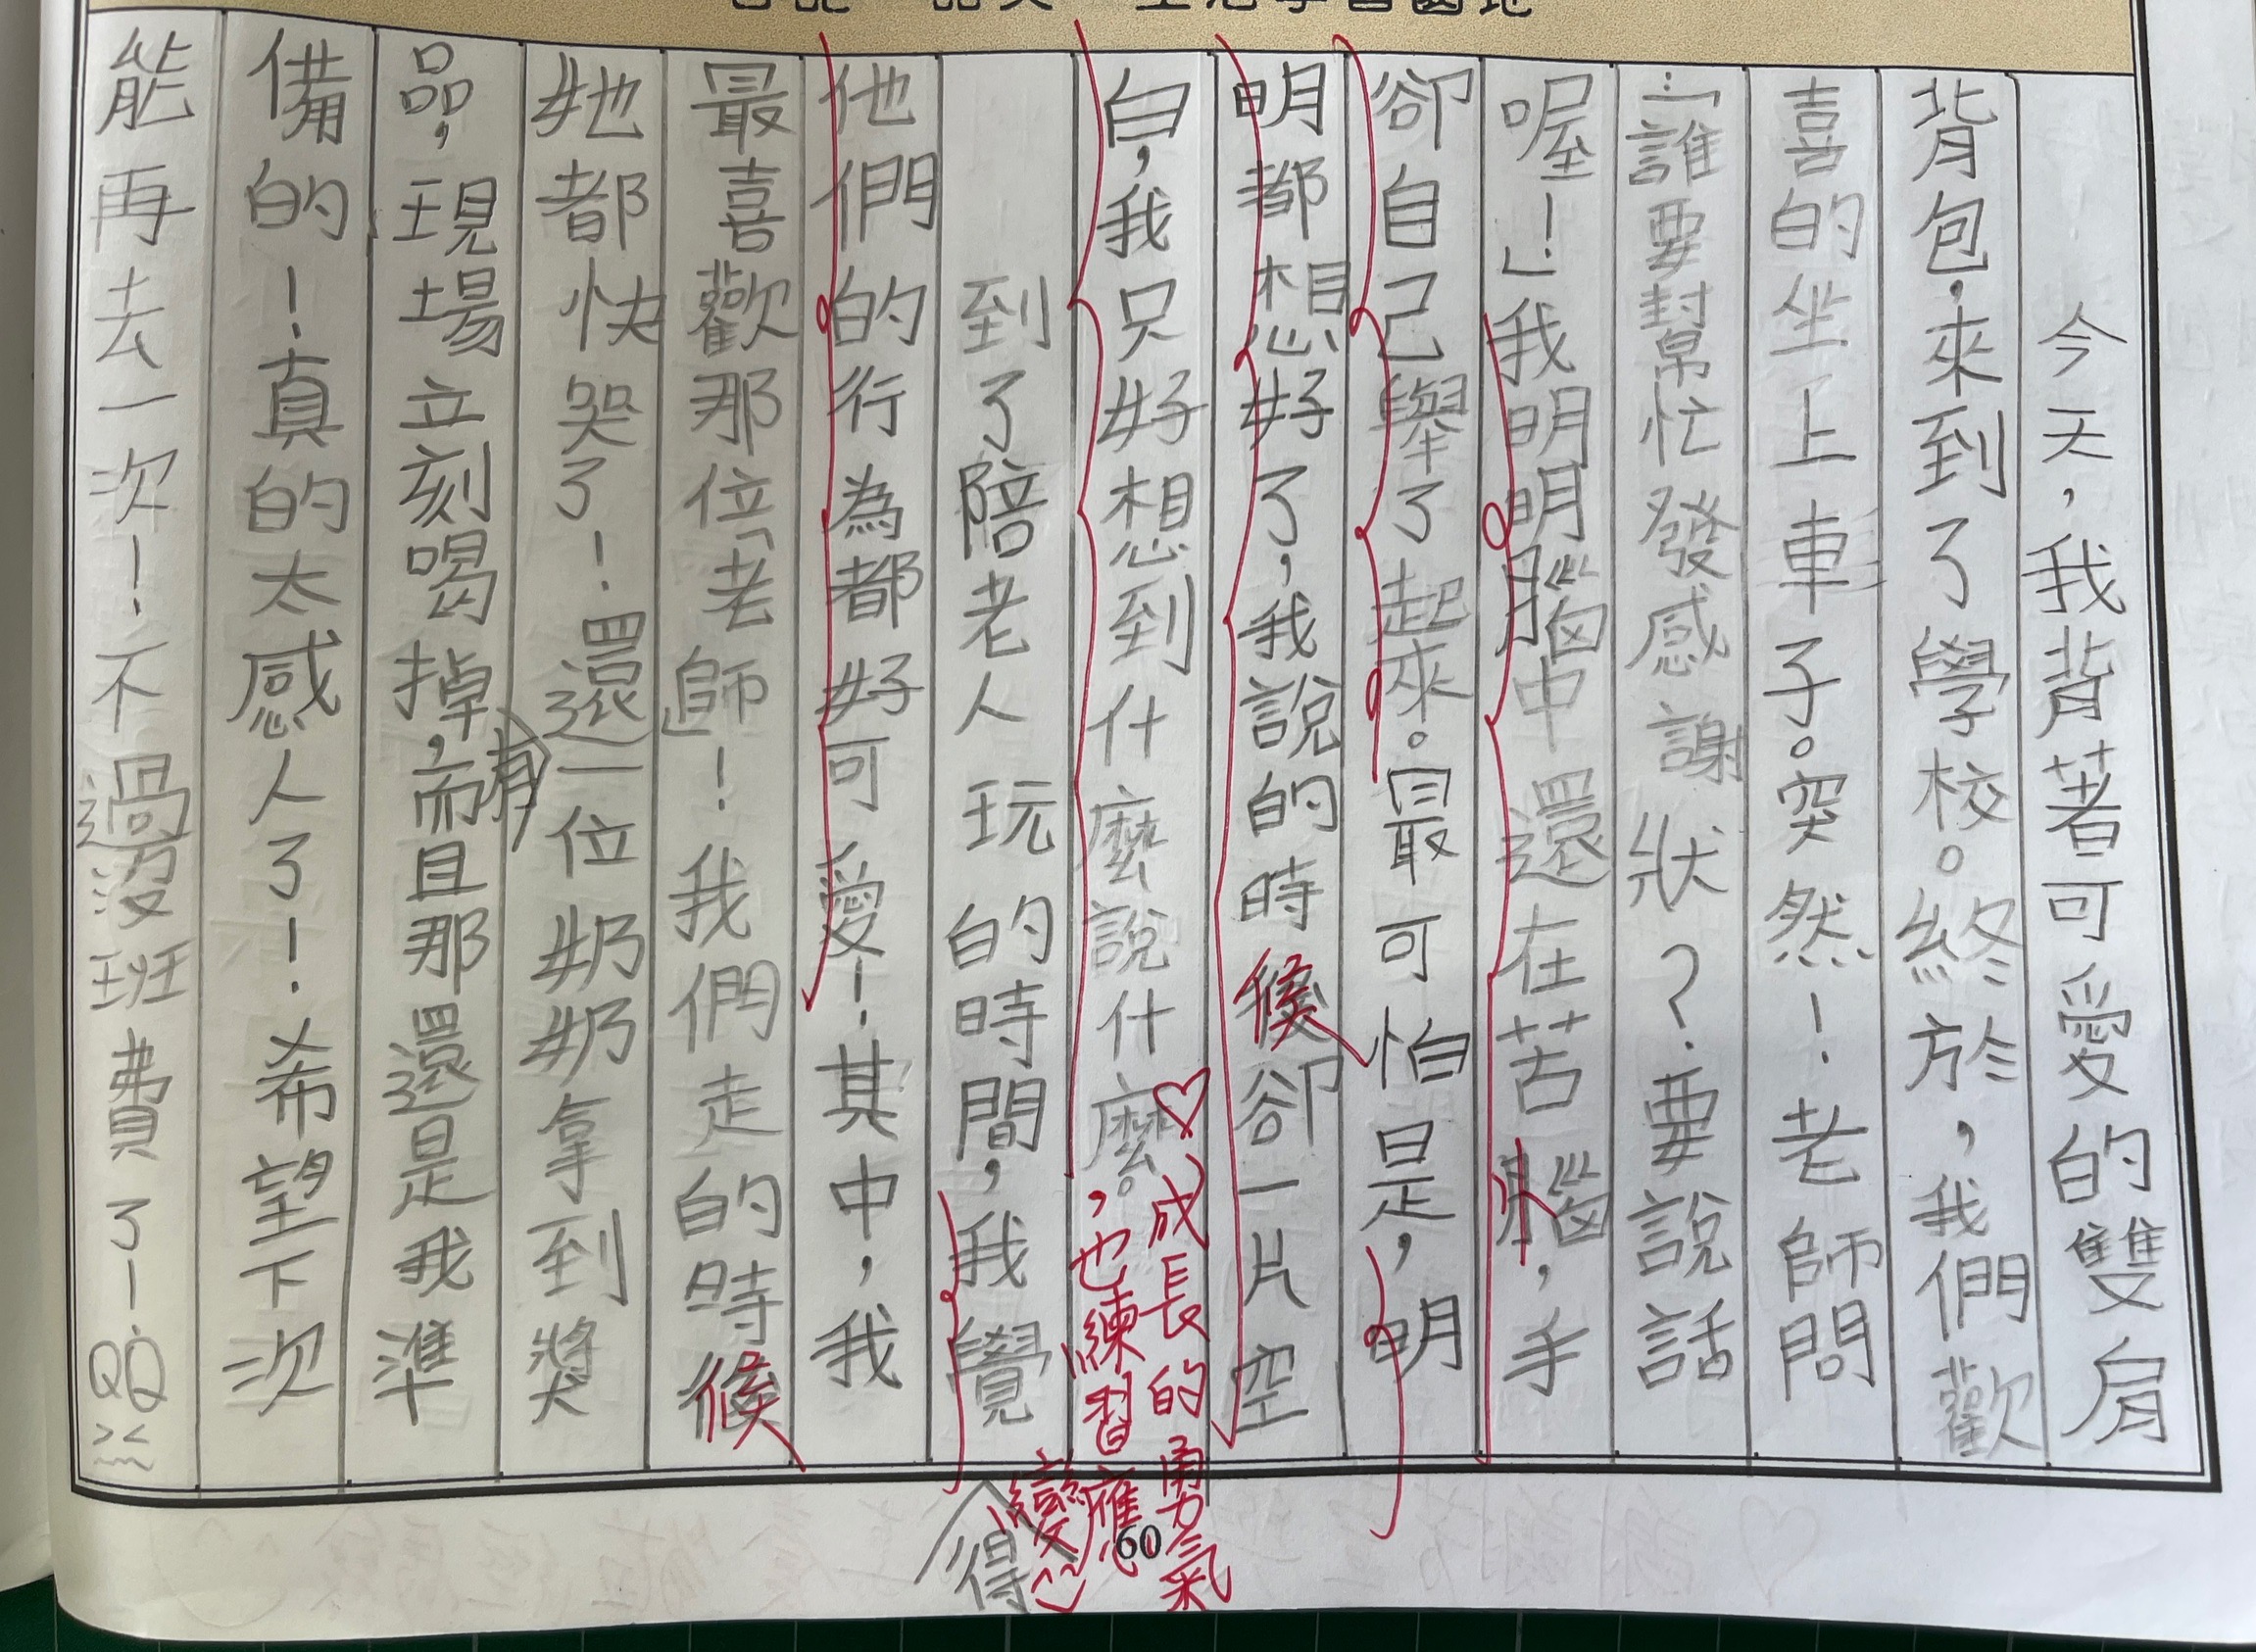 今天，我背著可愛的雙肩
背包，來到了學校。終於，我們歡
喜的坐上車子。突然！老師問
：「誰要幫忙發感謝狀？要說話
喔！」我明明腦中還在苦腦，手
卻自己舉了起來。最可怕是，明
明都想好了，我說的時候卻一片空
白，我只好想到什麼說什麼。
到了陪老人玩的時間，我覺得
他們的行為都好可愛！其中，我
最喜歡那位「老師」！我們走的時候
她都快哭了！還有一位奶奶拿到獎
品，現場立刻喝掉，而且那還是我準
備的！真的太感人了！希望下次
能再去一次！不過沒班費了！QQ
♡成長的勇氣
，也練習應
變
60